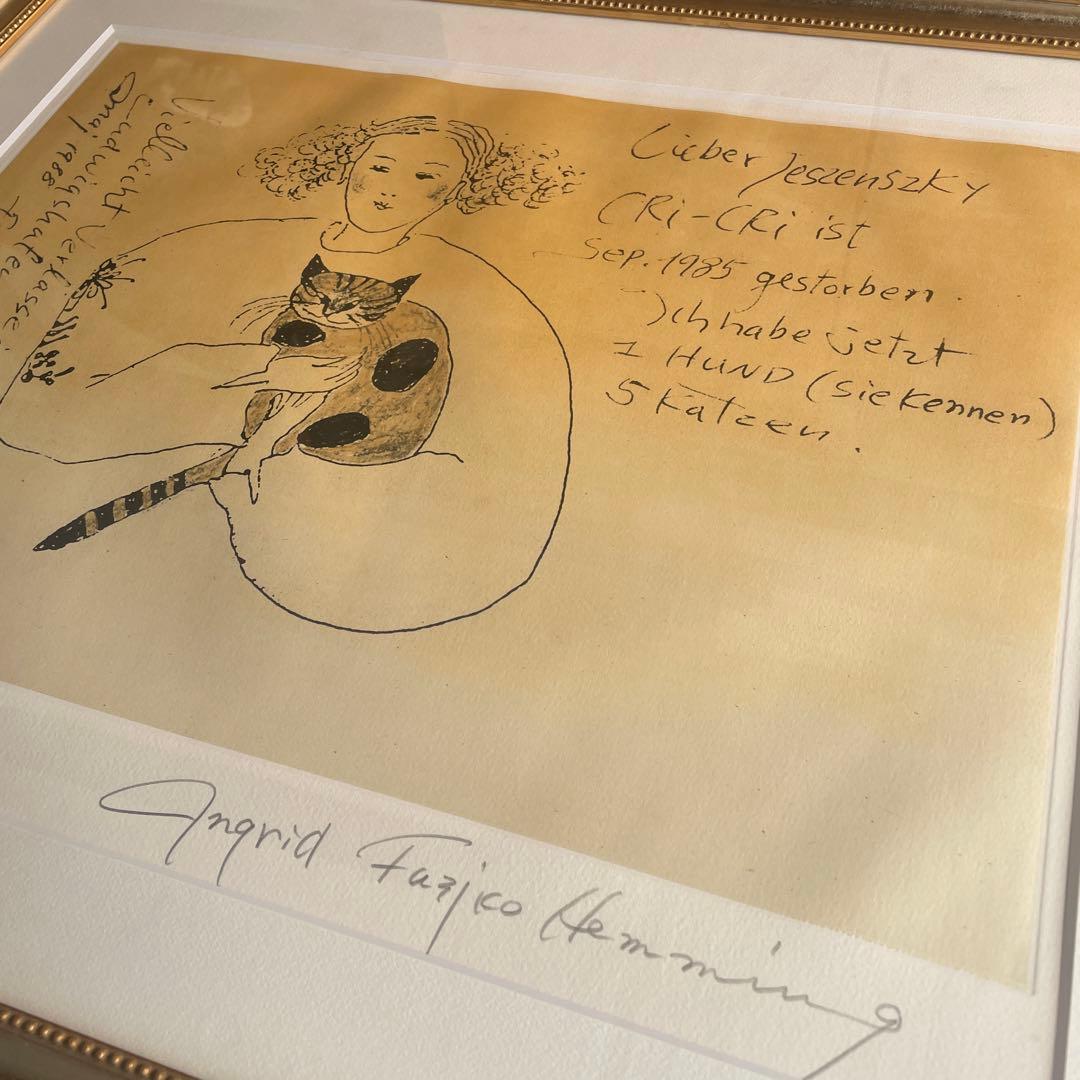 Lieber Jeszenszky
CRi-CRi ist
Sep. 1985 gestorben.
Ich habe jetzt
1 HUND (sie kennen)
5 Katzen.
Vielleicht Verlasse
Ludwigshafen
maj 1988
Ingrid Fuzjko Hemming